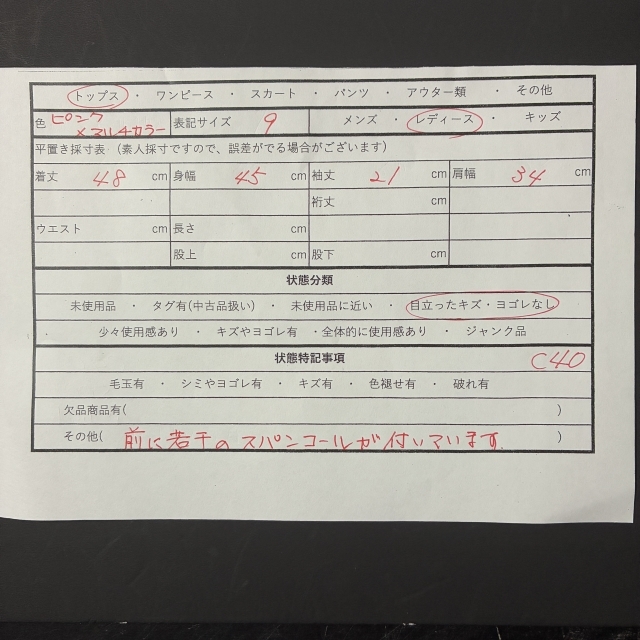 トップス ・ ワンピース ・ スカート ・ パンツ ・ アウター類 ・ その他
色 ピンク×マルチカラー 表記サイズ 9 メンズ ・ レディース ・ キッズ
平置き採寸表 (素人採寸ですので、誤差がでる場合がございます)
着丈 48 cm 身幅 45 cm 袖丈 21 cm 肩幅 34 cm
裄丈 cm
ウエスト cm 長さ cm
股上 cm 股下 cm
状態分類
未使用品 ・ タグ有(中古品扱い) ・ 未使用品に近い ・ 目立ったキズ・ヨゴレなし
少々使用感あり ・ キズやヨゴレ有 ・全体的に使用感あり ・ ジャンク品
状態特記事項 C40
毛玉有 ・ シミやヨゴレ有 ・ キズ有 ・ 色褪せ有 ・ 破れ有
欠品商品有( )
その他( 前に若干のスパンコールが付いています。 )